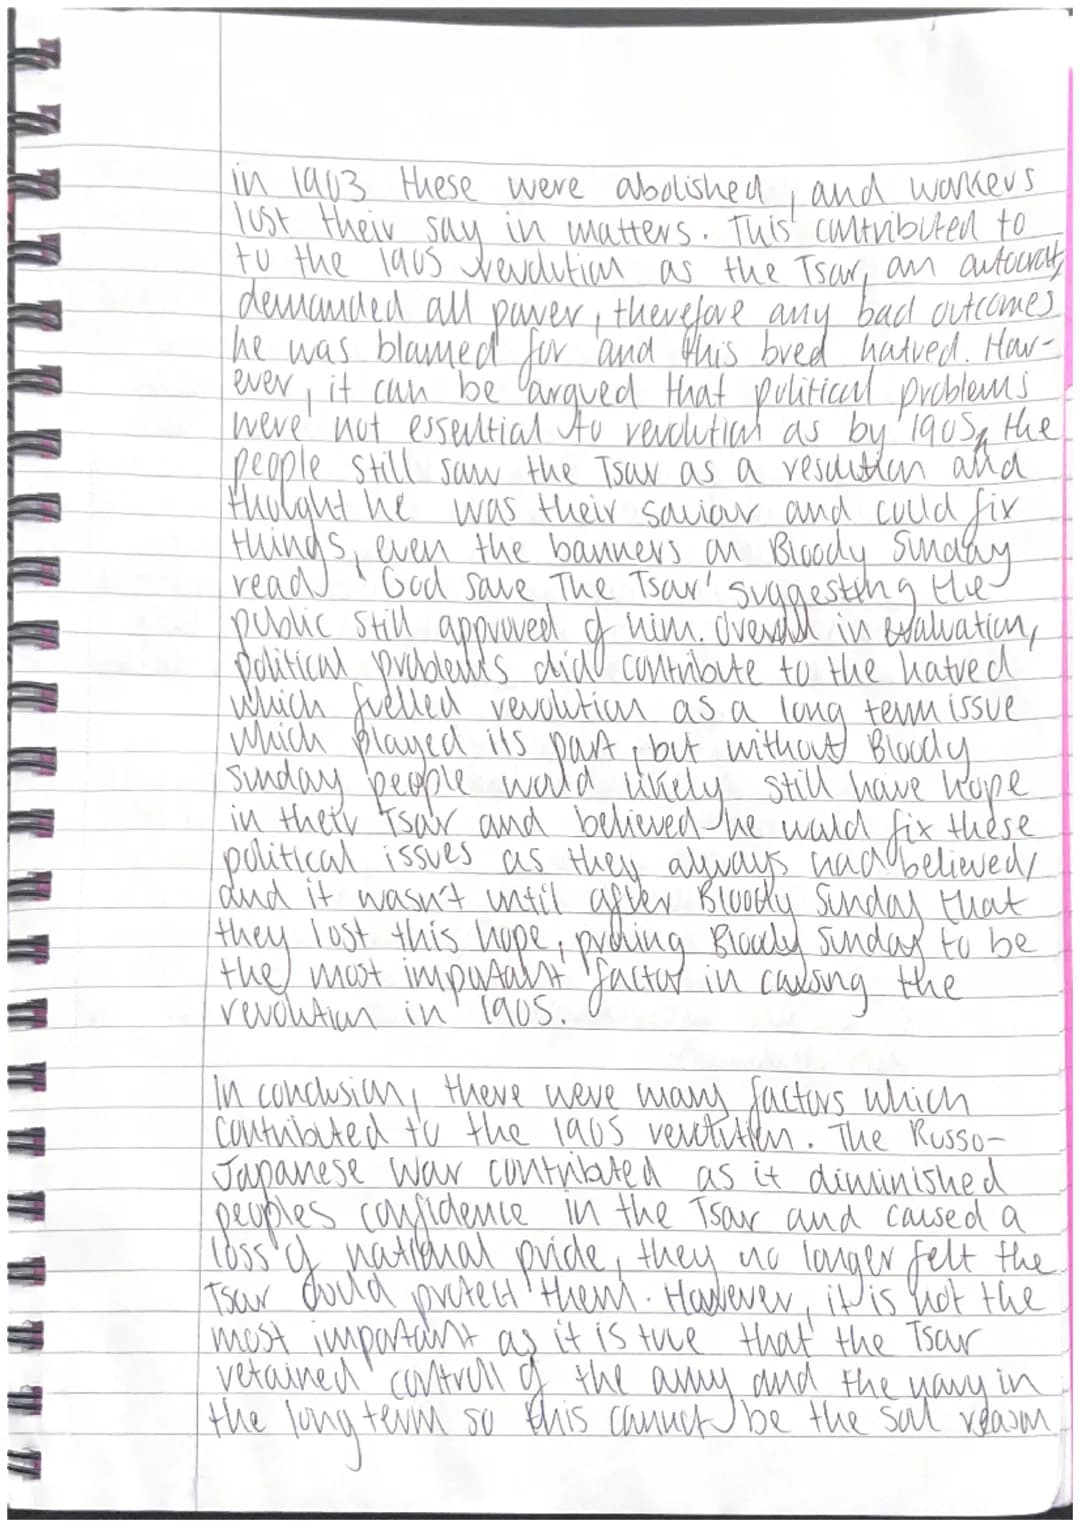 in 1903 these were abolished, and workers
lost their say in matters. This contributed to
to the 1905 revolution as the Tsar, an autocrat,
demanded all power, therefore any bad outcomes
he was blamed for and this bred hatred. How-
ever, it can be argued that political problems
were not essential to revolution as by 1905, the
people still saw the Tsar as a resolution and
thought he was their saviour and could fix
things, even the banners on Bloody Sunday
read 'God Save The Tsar' suggesting the
public still approved of him. Overall in evaluation,
political problems did contribute to the hatred
which fuelled revolution as a long term issue
which played its part, but without Bloody
Sunday people would likely still have hope
in their Tsar and believed he would fix these
political issues as they always had believed,
and it wasn't until after Bloody Sunday that
they lost this hope, proving Bloody Sunday to be
the most important factor in causing the
revolution in 1905.
In conclusion, there were many factors which
contributed to the 1905 revolution. The Russo-
Japanese War contributed as it diminished
peoples confidence in the Tsar and caused a
loss of national pride, they no longer felt the
Tsar could protect them. However, it is not the
most important as it is true that the Tsar
retained controll of the army and the navy in
the long term so this cannot be the sol reason